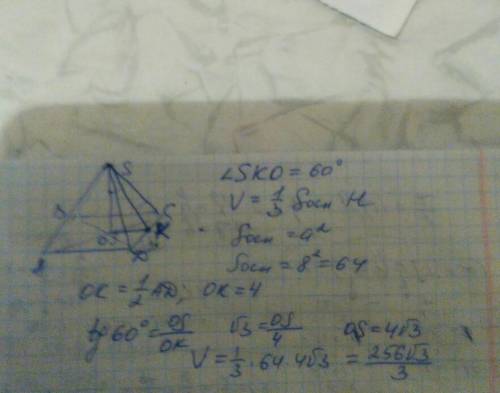 ∠SKO = 60°
V = 1/3 Sосн H
Sосн = a²
Sосн = 8² = 64
OK = 1/2 AD; OK = 4
tg 60° = OS/OK √3 = OS/4 OS = 4√3
V = 1/3 · 64 · 4√3 = 256√3/3
S
O
K